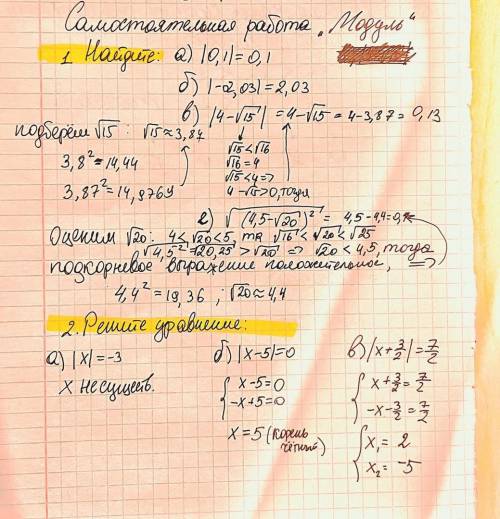 Самостоятельная работа „Модуль“
1. Найдите: а) |0,1| = 0,1
б) |-2,03| = 2,03
в) |4-√15| = 4-√15 = 4-3,87 = 0,13
подберём √15: √15 ≈ 3,87
3,8² = 14,44
3,87² = 14,9769
√15 < √16
√16 = 4
√15 < 4 =>
4-√15 > 0, тогда
г) √(4,5-√20)² = 4,5-4,4 = 0,1
Оценим √20: 4 < √20 < 5, тк √16 < √20 < √25
√4,5² = √20,25 > √20 => √20 < 4,5, тогда
подкорневое выражение положительное, =>
4,4² = 19,36 ; √20 ≈ 4,4
2. Решите уравнение:
а) |x| = -3
x не существ.
б) |x-5| = 0
x-5 = 0
-x+5 = 0
x = 5 (корень чётный)
в) |x+3/2| = 7/2
x+3/2 = 7/2
-x-3/2 = 7/2
x₁ = 2
x₂ = -5